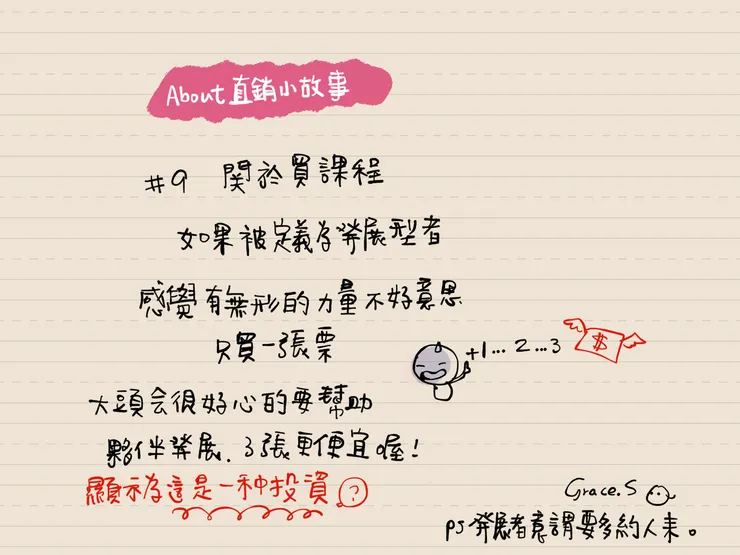 About 直銷小故事
#9 関於買課程
如果被定義為發展型者
感覺有無形的力量不好意思
只買一張票
+1... 2...3
$
大頭会很好心的要幫助
夥伴發展.3張更便宜喔！
顯示為這是一种投資.?
Grace.S
ps發展者意謂要多約人来。